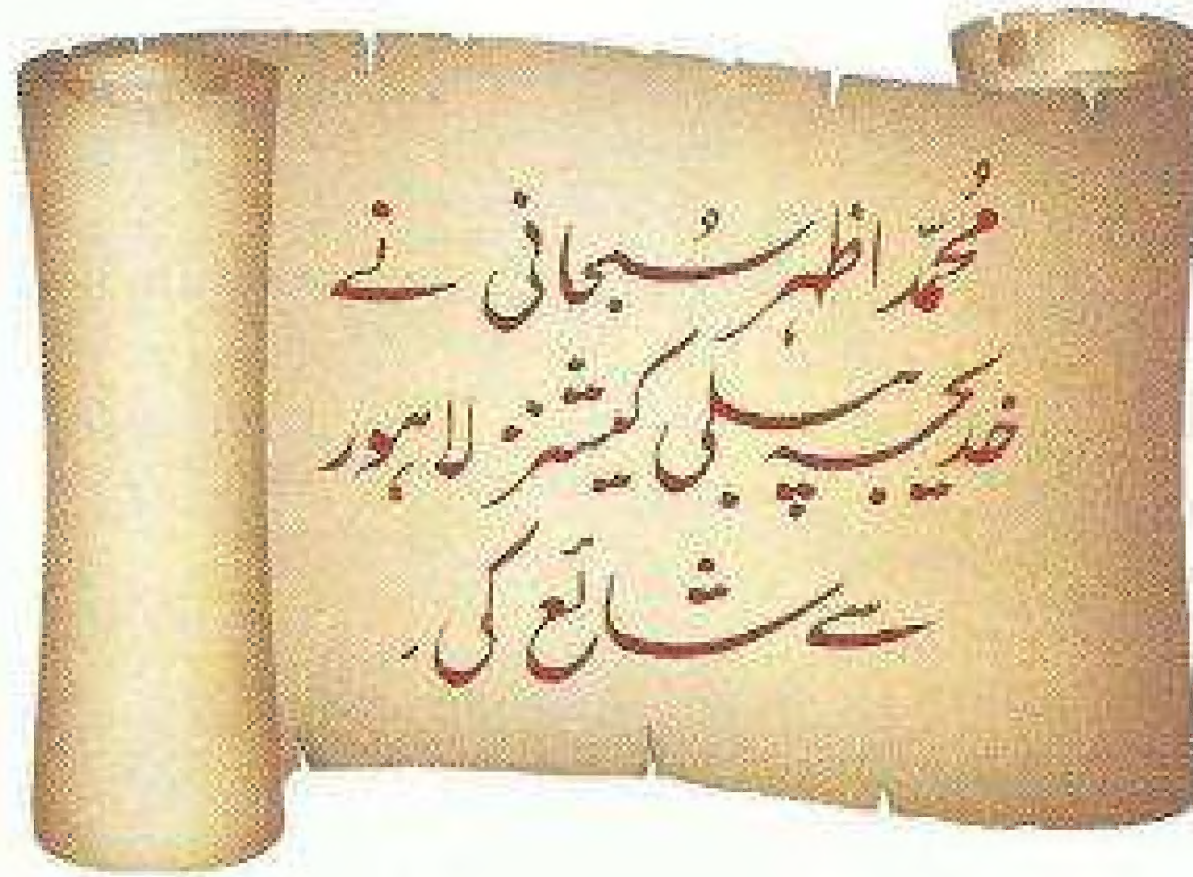 مُحمّد اظہر سُبحانی نے
خدیجہ پبلی کیشنز لاہور
سے شائع کی۔